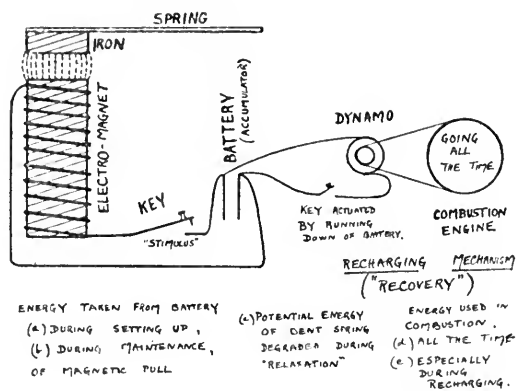 SPRING
IRON
ELECTRO-MAGNET
BATTERY
(ACCUMULATOR)
KEY
"STIMULUS"
DYNAMO
GOING
ALL
THE TIME
KEY ACTUATED
BY RUNNING
DOWN OF BATTERY.
COMBUSTION
ENGINE
RECHARGING MECHANISM
("RECOVERY")
ENERGY TAKEN FROM BATTERY
(a) DURING SETTING UP,
(b) DURING MAINTENANCE,
OF MAGNETIC PULL
(c) POTENTIAL ENERGY
OF BENT SPRING
DEGRADED DURING
"RELAXATION"
ENERGY USED IN
COMBUSTION.
(d) ALL THE TIME
(e) ESPECIALLY
DURING
RECHARGING.